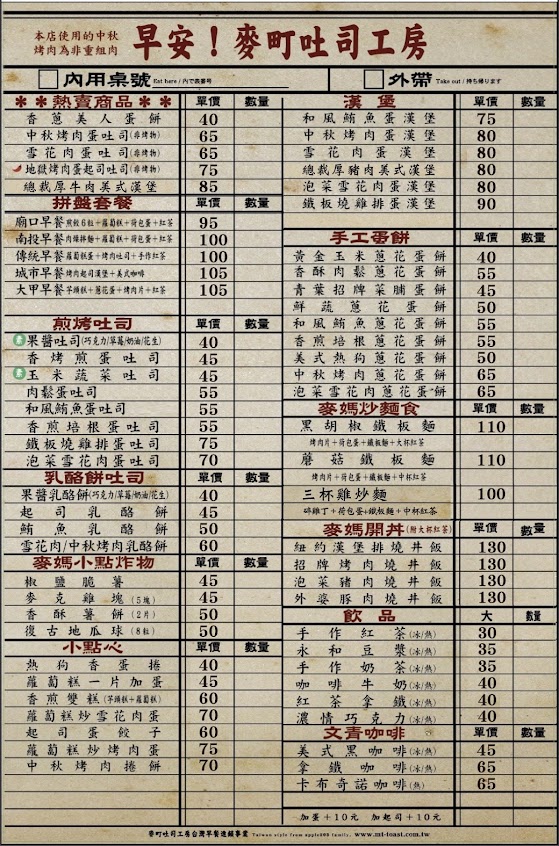 本店使用的中秋
烤肉為非重組肉
早安！麥町吐司工房
內用桌號 Eat here / 內で表番号
外帶 Take out / 持ち帰ります
＊＊熱賣商品＊＊ 單價 數量
香蔥美人蛋餅 40
中秋烤肉蛋吐司(非烤物) 65
雪花肉蛋吐司(非烤物) 65
地獄烤肉蛋起司吐司(非烤物) 75
總裁厚牛肉美式漢堡 85
拼盤套餐 單價 數量
廟口早餐 煎餃6粒+蘿蔔糕+荷包蛋+紅茶 95
南投早餐 肉燥拌麵+蘿蔔糕+荷包蛋+紅茶 100
傳統早餐 蘿蔔糕蛋+烤肉吐司+手作紅茶 100
城市早餐 烤肉起司漢堡+美式咖啡 105
大甲早餐 芋頭糕+蔥花蛋+烤肉片+紅茶 105
煎烤吐司 單價 數量
素 果醬吐司(巧克力/草莓/奶油/花生) 40
香烤煎蛋吐司 45
素 玉米蔬菜吐司 45
肉鬆蛋吐司 55
和風鮪魚蛋吐司 55
香煎培根蛋吐司 55
鐵板燒雞排蛋吐司 75
泡菜雪花肉蛋吐司 70
乳酪餅吐司 單價 數量
果醬乳酪餅(巧克力/草莓/奶油/花生) 40
起司乳酪餅 45
鮪魚乳酪餅 50
雪花肉/中秋烤肉乳酪餅 60
麥媽小點炸物 單價 數量
椒鹽脆薯 45
麥克雞塊(5塊) 45
香酥薯餅(2片) 50
復古地瓜球(8粒) 50
小點心 單價 數量
熱狗香蛋捲 40
蘿蔔糕一片加蛋 45
香煎雙糕(芋頭糕+蘿蔔糕) 60
蘿蔔糕炒雪花肉蛋 70
起司蛋餃子 60
蘿蔔糕炒烤肉蛋 75
中秋烤肉捲餅 70
漢堡 單價 數量
和風鮪魚蛋漢堡 75
中秋烤肉蛋漢堡 80
雪花肉蛋漢堡 80
總裁厚豬肉美式漢堡 80
泡菜雪花肉蛋漢堡 80
鐵板燒雞排蛋漢堡 90
手工蛋餅 單價 數量
黃金玉米蔥花蛋餅 40
香酥肉鬆蔥花蛋餅 55
青葉招牌菜脯蛋餅 45
鮮蔬蔥花蛋餅 50
和風鮪魚蔥花蛋餅 55
香煎培根蔥花蛋餅 55
美式熱狗蔥花蛋餅 50
中秋烤肉蔥花蛋餅 65
泡菜雪花肉蔥花蛋餅 65
麥媽炒麵食 單價 數量
黑胡椒鐵板麵 110
烤肉片+荷包蛋+鐵板麵+大杯紅茶
蘑菇鐵板麵 110
烤肉片+荷包蛋+鐵板麵+中杯紅茶
三杯雞炒麵 100
碎雞丁+荷包蛋+鐵板麵+中杯紅茶
麥媽開丼(附大杯紅茶) 單價 數量
紐約漢堡排燒丼飯 130
招牌烤肉燒丼飯 130
泡菜豬肉燒丼飯 130
外婆豚肉燒丼飯 130
飲品 大 數量
手作紅茶(冰/熱) 30
永和豆漿(冰/熱) 35
手作奶茶(冰/熱) 35
咖啡牛奶(冰/熱) 40
紅茶拿鐵(冰/熱) 40
濃情巧克力(冰/熱) 40
文青咖啡 單價 數量
美式黑咖啡(冰/熱) 45
拿鐵咖啡(冰/熱) 65
卡布奇諾咖啡(熱) 65
加蛋+10元 加起司+10元
麥町吐司工房台灣早餐連鎖事業 Taiwan style from apple203 family. www.mt-toast.com.tw